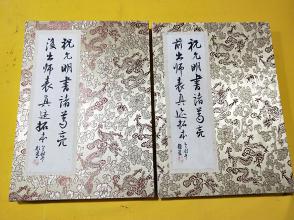 祝允明书诸葛亮
前出师表真迹拓本
祝允明书诸葛亮
後出师表真迹拓本